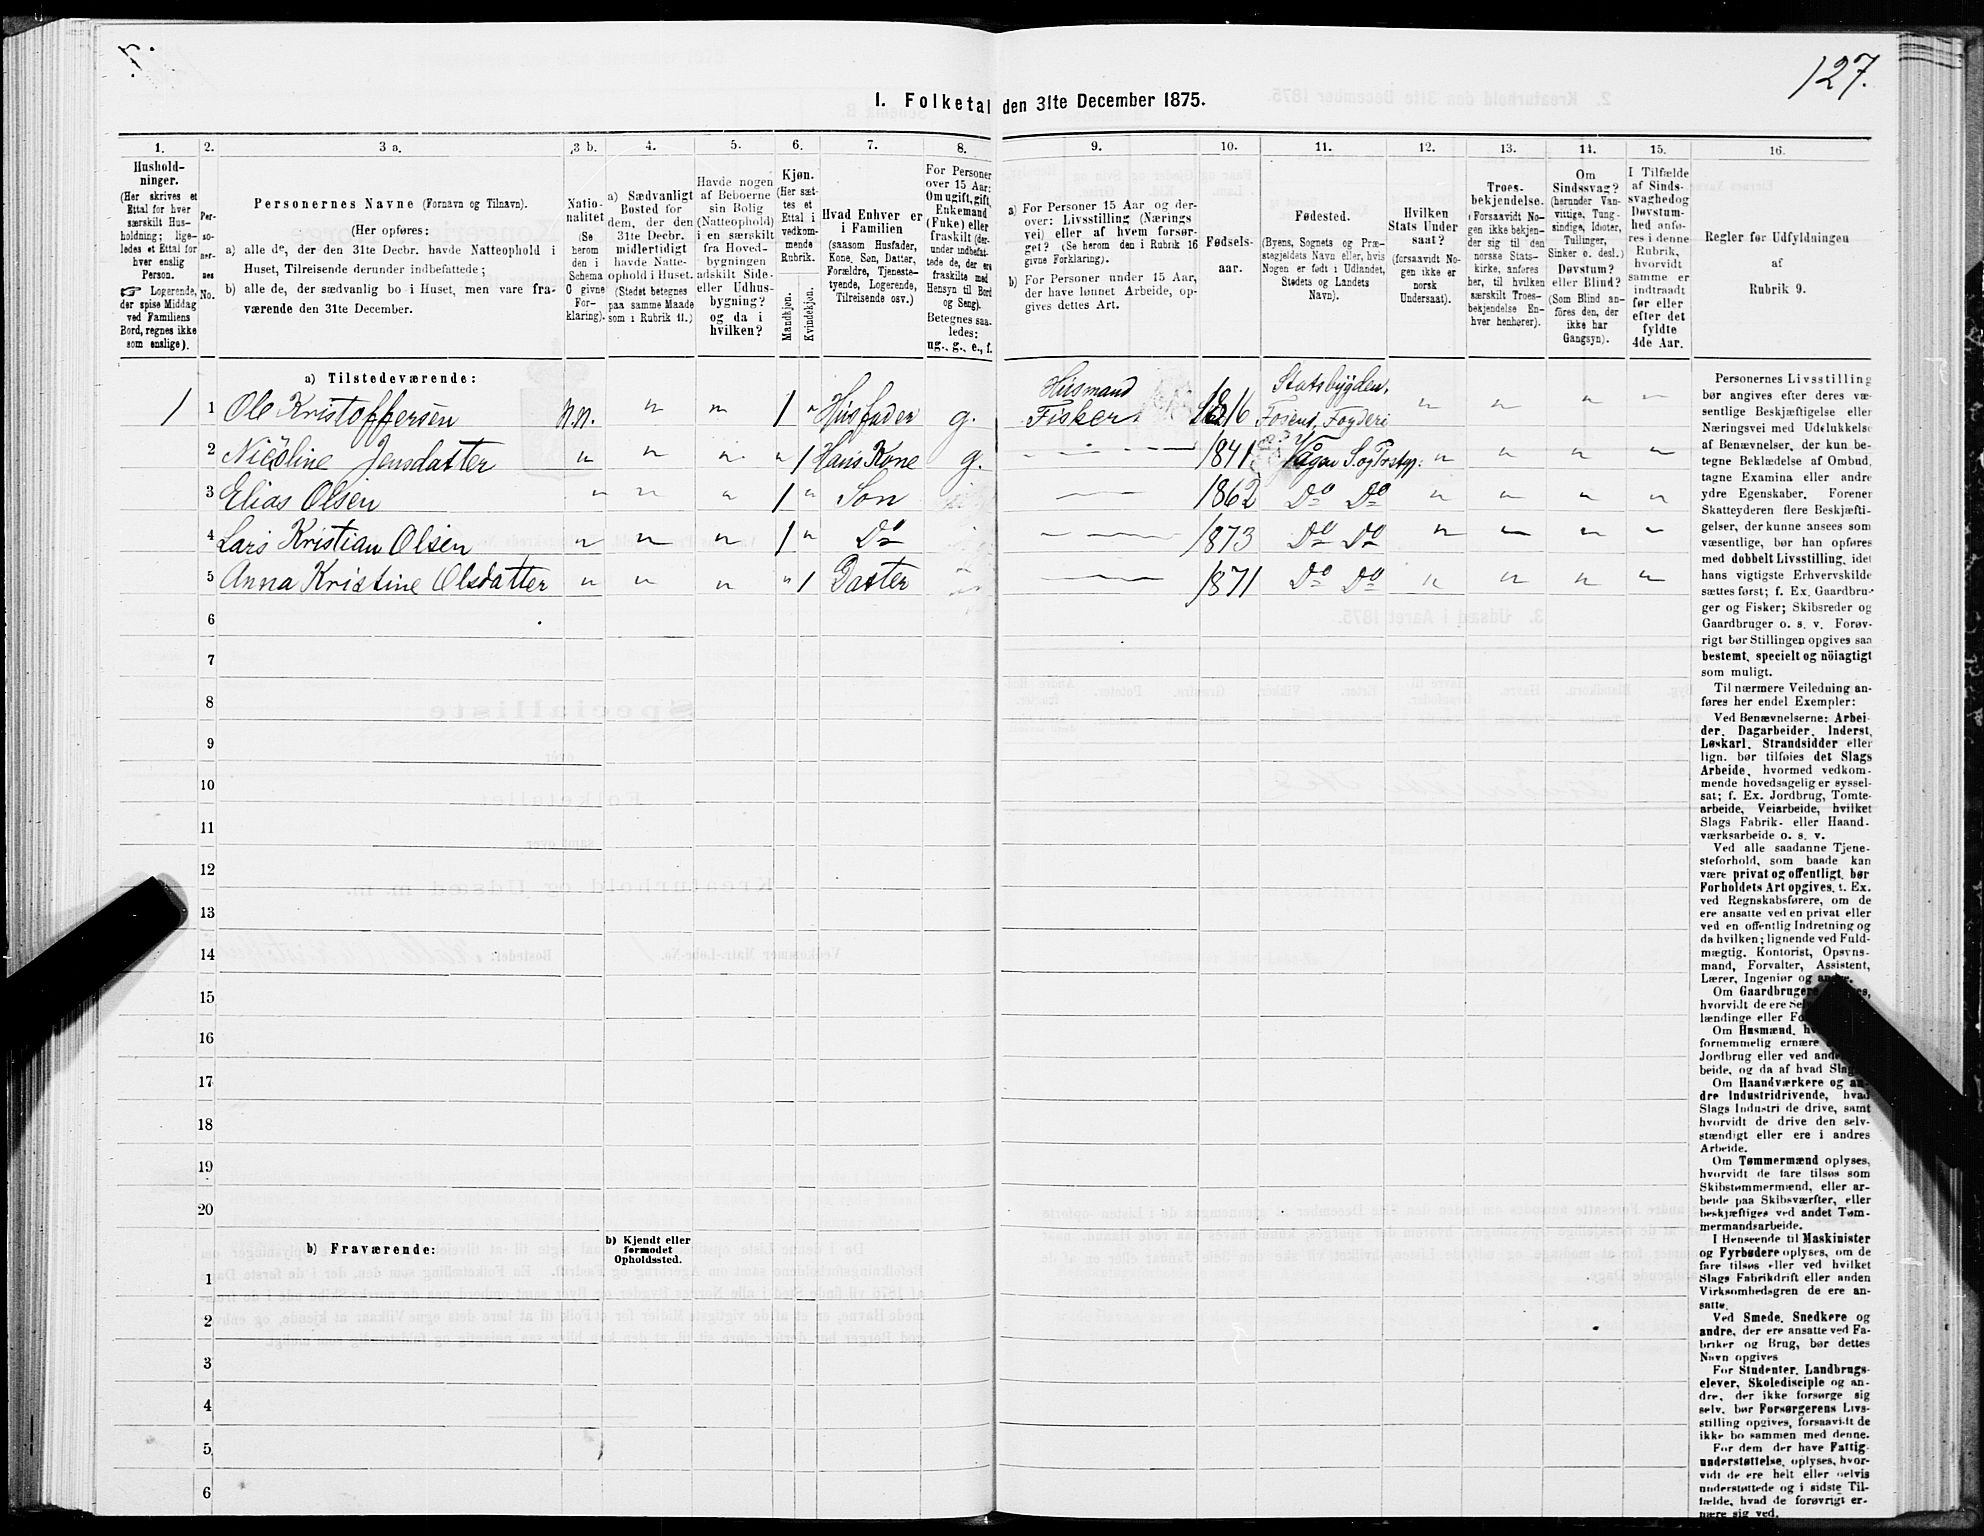 127.
1. Folketal den 31te December 1875.
1. 2. 3 a. 3 b. 4. 5. 6. 7. 8. 9. 10. 11. 12. 13. 14. 15. 16.
Hushold-
ninger.
(Her skrives et
Ettal for hver
særskilt Hus-
holdning; lige-
ledes et Ettal for
hver enslig
Person.
☞ Logerende,
der spise Middag
ved Familiens
Bord, regnes ikke
som enslige).
Per-
so-
ner-
nes
No.
Personernes Navne (Fornavn og Tilnavn).
(Her opføres:
a) alle de, der den 31te Decbr. havde Natteophold i
Huset, Tilreisende derunder indbefattede;
b) alle de, der sædvanlig bo i Huset, men vare fra-
værende den 31te December.
Natio-
nalitet
(Se
herom
den i
Schema
O givne
For-
klaring).
a) Sædvanligt
Bosted for
dem, der den
31te Decbr.
midlertidigt
havde Natte-
ophold i Huset.
(Stedet betegnes
paa samme Maade
som i Rubrik 11.)
Havde nogen
af Beboerne
sin Bolig
(Natteophold)
i en særskilt
fra Hoved-
bygningen
adskilt Side-
eller Udhus-
bygning?
og da i
hvilken?
Kjøn.
(Her sæt-
tes et
Ettal i
vedkom-
mende
Rubrik.
Mandkjøn.
Kvindekjøn.
Hvad Enhver er
i Familien
(saasom Husfader,
Kone, Søn, Datter,
Forældre, Tjeneste-
tyende, Logerende,
Tilreisende osv.)
For Personer
over 15 Aar:
Om ugift, gift,
Enkemand
(Enke) eller
fraskilt (der-
under indbefat-
tede de, der ere
fraskilte med
Hensyn til Bord
og Seng).
Betegnes saa-
ledes:
ug., g., e., f.
a) For Personer 15 Aar og der-
over: Livsstilling (Nærings
vei) eller af hvem forsør-
get? (Se herom den i Rubrik 16
givne Forklaring).
b) For Personer under 15 Aar,
der have lønnet Arbeide, op-
gives dettes Art.
Fødsels-
aar.
Fødested.
(Byens, Sognets og Præ-
stegjeldets Navn eller, hvis
Nogen er født i Udlandet,
Stedets og Landets
Navn).
Hvilken
Stats Under
saat?
(forsaavidt No-
gen ikke er
norsk
Undersaat).
Troes-
bekjendelse.
(Forsaavidt No-
gen ikke bekjen-
der sig til den
norske Stats-
kirke, anføres
her, til hvilken
særskilt Troes-
bekjendelse En-
hver henhører).
Om
Sindssvag?
(herunder Van-
vittige, Tung-
sindige, Idioter,
Tullinger,
Sinker o. desl.)
Døvstum?
eller Blind?
(Som Blind an-
føres den, der
ikke har
Gangsyn).
I Tilfælde
af Sinds-
svaghed og
Døvstum-
hed anfø-
res i denne
Rubrik,
hvorvidt
samme er
indtraadt
før eller
efter det
fyldte
4de Aar.
Regler før Udfyldningen
af
Rubrik 9.
a) Tilstedeværende:
1 1 Ole Kristoffersen n.n. " " 1 " Husfader g. Husmand Fisker 1816 Statsbygden, Fosens Fogderi " " " "
2 Nicoline Jensdatter " " " " 1 Hans Kone g. " 1841 Vågan S. og Prstgj: " " " "
3 Elias Olsen " " " 1 " Søn 1862 Do Do " " " "
4 Lars Kristian Olsen " " " 1 " Do 1873 Do Do " " " "
5 Anna Kristine Olsdatter " " " " 1 Datter 1871 Do Do " " " "
6
7
8
9
10
11
12
13
14
15
16
17
18
19
20
b) Fraværende:
b) Kjendt eller
formodet
Opholdssted.
1
2
3
4
5
6
Personernes Livsstilling
bør angives efter deres væ-
sentlige Beskjæftigelse eller
Næringsvei med Udelukkelse
af Benævnelser, der kun be-
tegne Beklædelse af Ombud,
tagne Examina eller andre
ydre Egenskaber. Forener
Skatteyderen flere Beskjæfti-
gelser, der kunne ansees som
væsentlige, bør han opføres
med dobbelt Livsstilling, idet
hans vigtigste Erhvervskilde
sættes først; f. Ex. Gaardbru-
ger og Fisker; Skibsreder og
Gaardbruger o. s. v. Forøv-
rigt bør Stillingen opgives saa
bestemt, specielt og nöiagtigt
som muligt.
Til nærmere Veiledning an-
føres her endel Exempler:
Ved Benævnelserne: Arbei-
der, Dagarbeider, Inderst,
Løskarl, Strandsidder eller
lign. bør tilføies det Slags
Arbeide, hvormed vedkom-
mende hovedsagelig er syssel-
sat; f. Ex. Jordbrug, Tomte-
arbeide, Veiarbeide, hvilket
Slags Fabrik- eller Haand-
værksarbeide o. s. v.
Ved alle saadanne Tjene-
steforhold, som baade kan
være privat og offentligt, bør
Forholdets Art opgives, f. Ex.
ved Regnskabsførere, om de
ere ansatte ved en privat eller
ved en offentlig Indretning og
da hvilken; lignende ved Fuld-
mægtig, Kontorist, Opsyns-
mand, Forvalter, Assistent,
Lærer, Ingeniør og andre.
Om Gaardbrugere
hvorvidt de ere
lændinge eller
Om Husmænd,
fornemmelig ernære
Jordbrug eller ved
beide, og da af hvad
Om Haandværkere og an-
dre Industridrivende, hvad
Slags Industri de drive, samt
hvorvidt de drive den selv-
stændigt eller ere i andres
Arbeide.
Om Tømmermænd oplyses,
hvorvidt de fare tilsøs som
Skibstømmermænd, eller ar-
beide paa Skibsværfter, eller
beskjæftiges ved andet Tøm-
mermandsarbeide.
I Henseende til Maskinister
og Fyrbødere oplyses, om de
fare tilsøs eller ved hvilket
Slags Fabrikdrift eller anden
Virksomhedsgren de ere an-
satte.
Ved Smede, Snedkere og
andre, der ere ansatte ved Fa-
briker og Brug, bør dettes
Navn opgives
For Studenter, Landbrugs-
elever, Skoledisciple og an-
dre, der ikke forsørge sig
selv, bør Forsørgerens Livs-
stilling opgives, forsaavidt de
ikke bo sammen med denne.
For dem der have Fattig-
understøttelse, oplyses, hvor-
vidt de ere helt eller delvis
understøttede og i sidste Til-
fælde, hvad de forøvrigt er-
nære sig ved.